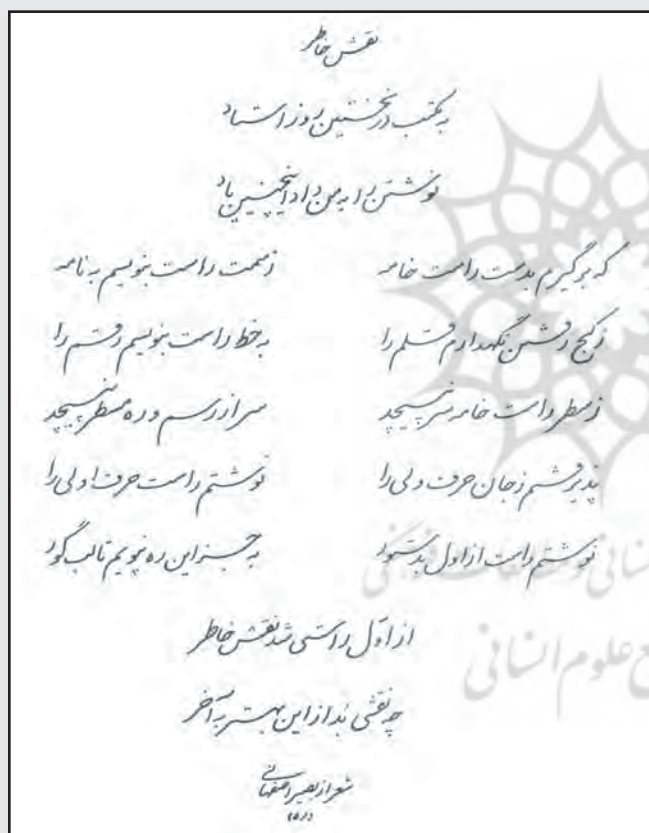 نقش خاطر
به مکتب در نخستین روز استاد
نوشتن را به من داد اینچنین یاد
که برگیرم بدست راست خامه    ز سمت راست بنویسم به نامه
ز کج رفتن نگهدارم قلم را    به خط راست بنویسم رقم را
ز مسطر راست خامه سر نپیچد    سر از رسم و ره مسطر نپیچد
پذیرفتم ز جان حرف ولی را    نوشتم راست حرف اولی را
نوشتم راست از اول بدستور    به جز این ره نپویم تا لب گور
از اول راستی شد نقش خاطر
چه نقشی بُد از این بهتر به آخر
شعر از بصیر اصفهانی
انسانی و مطالعات فرهنگی
ع علوم انسانی